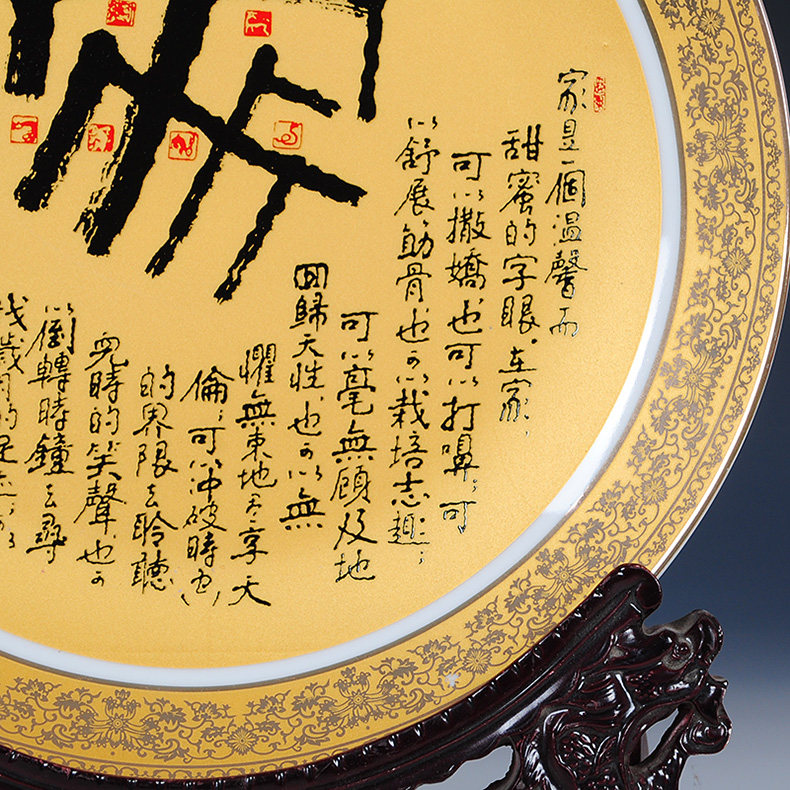 家是一個温馨而
甜蜜的字眼，在家，
可以撒嬌也可以打鼻；可
以舒展筋骨也可以栽培志趣；
可以毫無顧及地
回歸天性，也可以無
懼無束地尽享天
倫；可以冲破時空
的界限去聆聽
兒時的笑聲也可
以倒轉時鐘去尋
找歲月的足迹